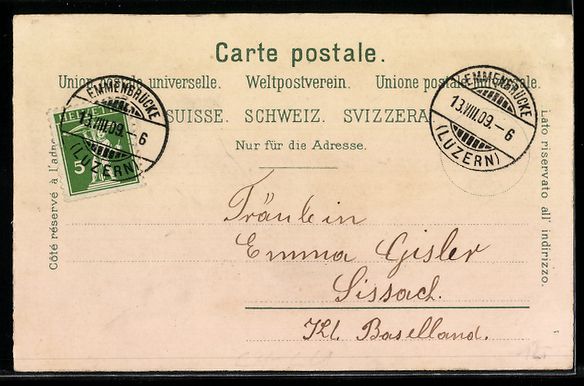 Carte postale.
Union postale universelle. Weltpostverein. Unione postale universale.
SUISSE. SCHWEIZ. SVIZZERA.
Nur für die Adresse.
Côté réservé à l'adresse
HELVETIA
5
EMMENBRÜCKE
13.VIII.09.-6
(LUZERN)
EMMENBRÜCKE
13.VIII.09.-6
(LUZERN)
Lato riservato all' indirizzo.
Fräulein
Emma Gisler
Sissach.
Kt. Baselland.